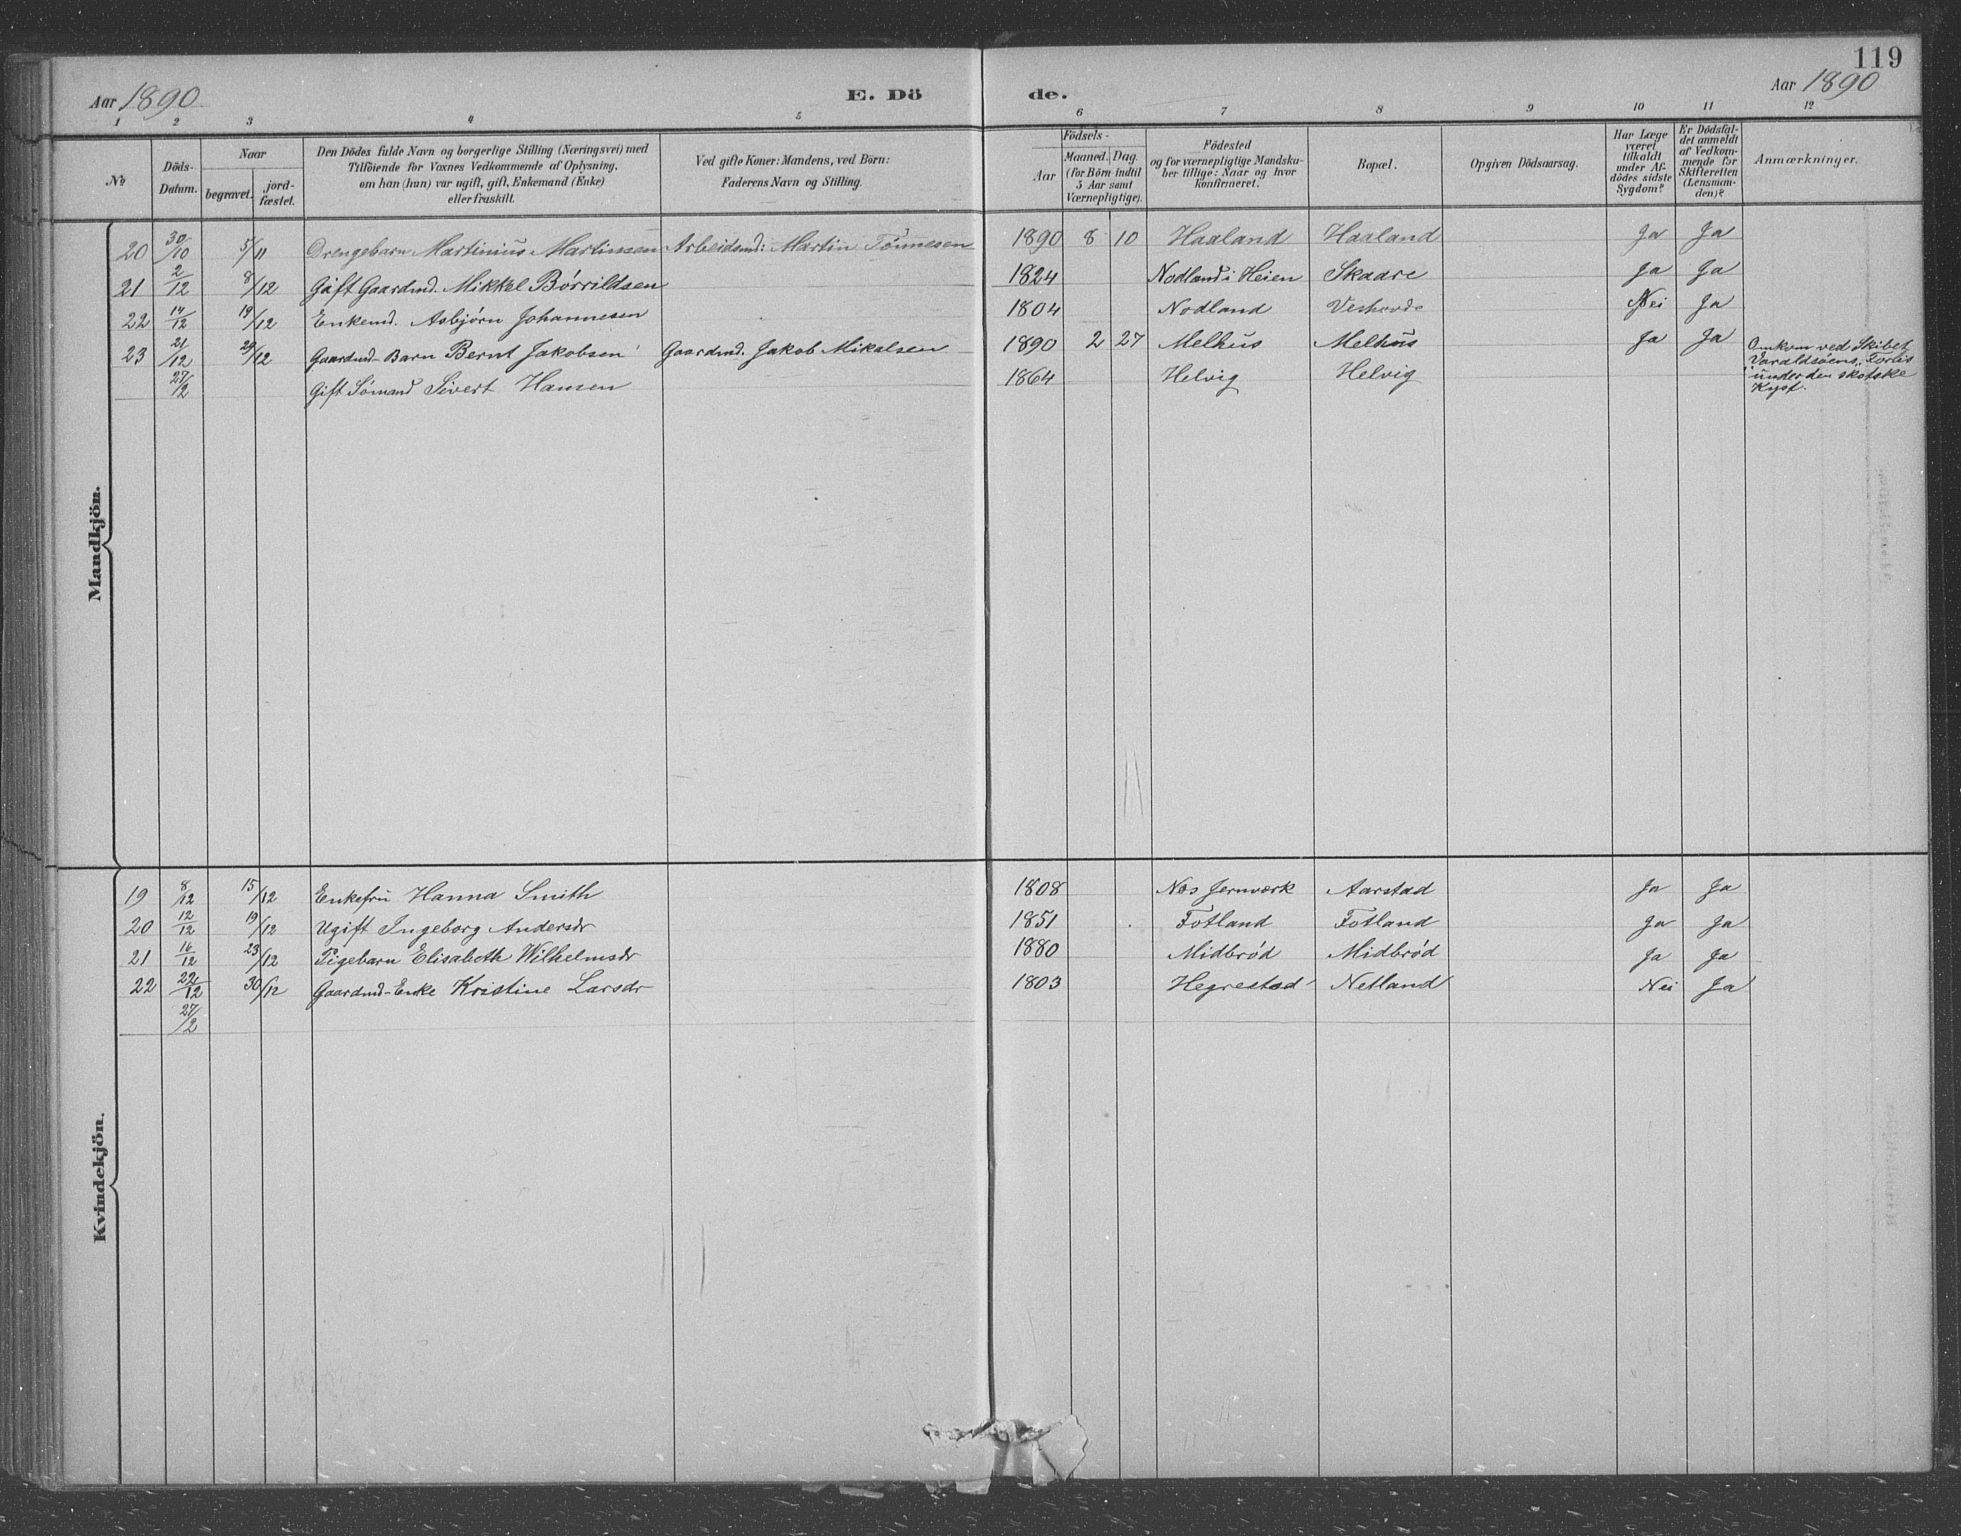 119
Aar 1890 E. Dö de. Aar 1890
1 2 3 4 5 6 7 8 9 10 11 12
No
Döds-Datum.
Naar begravet. jordfæstet.
Den Dödes fulde Navn og borgerlige Stilling (Næringsvei) med
Tilföiende for Voxnes Vedkommende af Oplysning,
om han (hun) var ugift, gift, Enkemand (Enke)
eller fraskilt.
Ved gifte Koner: Mandens, ved Börn:
Faderens Navn og Stilling.
Födsels-
Aar Maaned. Dag.
(for Börn indtil
5 Aar samt
Værnepligtige).
Födested
og for værnepligtige Mandskaber tillige: Naar og hvor
konfirmeret.
Bopæl.
Opgiven Dödsaarsag.
Har Læge
været
tilkaldt
under Afdödes sidste
Sygdom?
Er Dödsfaldet anmeldt
af Vedkommende for
Skifteretten
(Lensmanden)?
Anmærkninger.
Mandkjön.
20 30/10 5/11 Drengebarn Martinius Martinssen Arbeidsmd: Martin Tönnesen 1890 8 10 Haaland Haaland Ja Ja
21 2/12 8/12 Gift Gaardmd. Mikkel Börrildsen 1824 Nodland i Heien Skaare Ja Ja
22 14/12 19/12 Enkemd. Asbjørn Johannesen 1804 Nodland Nei Ja
23 21/12 29/12 Gaardmd-Barn Bernt Jakobsen Gaardmd. Jakob Mikalsen 1890 2 27 Melhus Melhus Ja Ja
27/2 Gift Sömand Sivert Hansen 1864 Helvig Helvig
Omkom ved Skibet
"Varaldsöens" Forlis
under den skotske
Kyst.
Kvindekjön.
19 8/12 15/12 Enkefru Hanna Smith 1808 Nes Jernværk Aarstad Ja Ja
20 12/12 19/12 Ugift Ingeborg Andersdr 1851 Fotland Fotland Ja Ja
21 16/12 23/12 Pigebarn Elisabeth Wilhelmsdr 1880 Midbrød Midbrød Ja Ja
22 22/12 30/12 Gaardmd-Enke Kristine Larsdr 1803 Hegrestad Netland Nei Ja
27/2